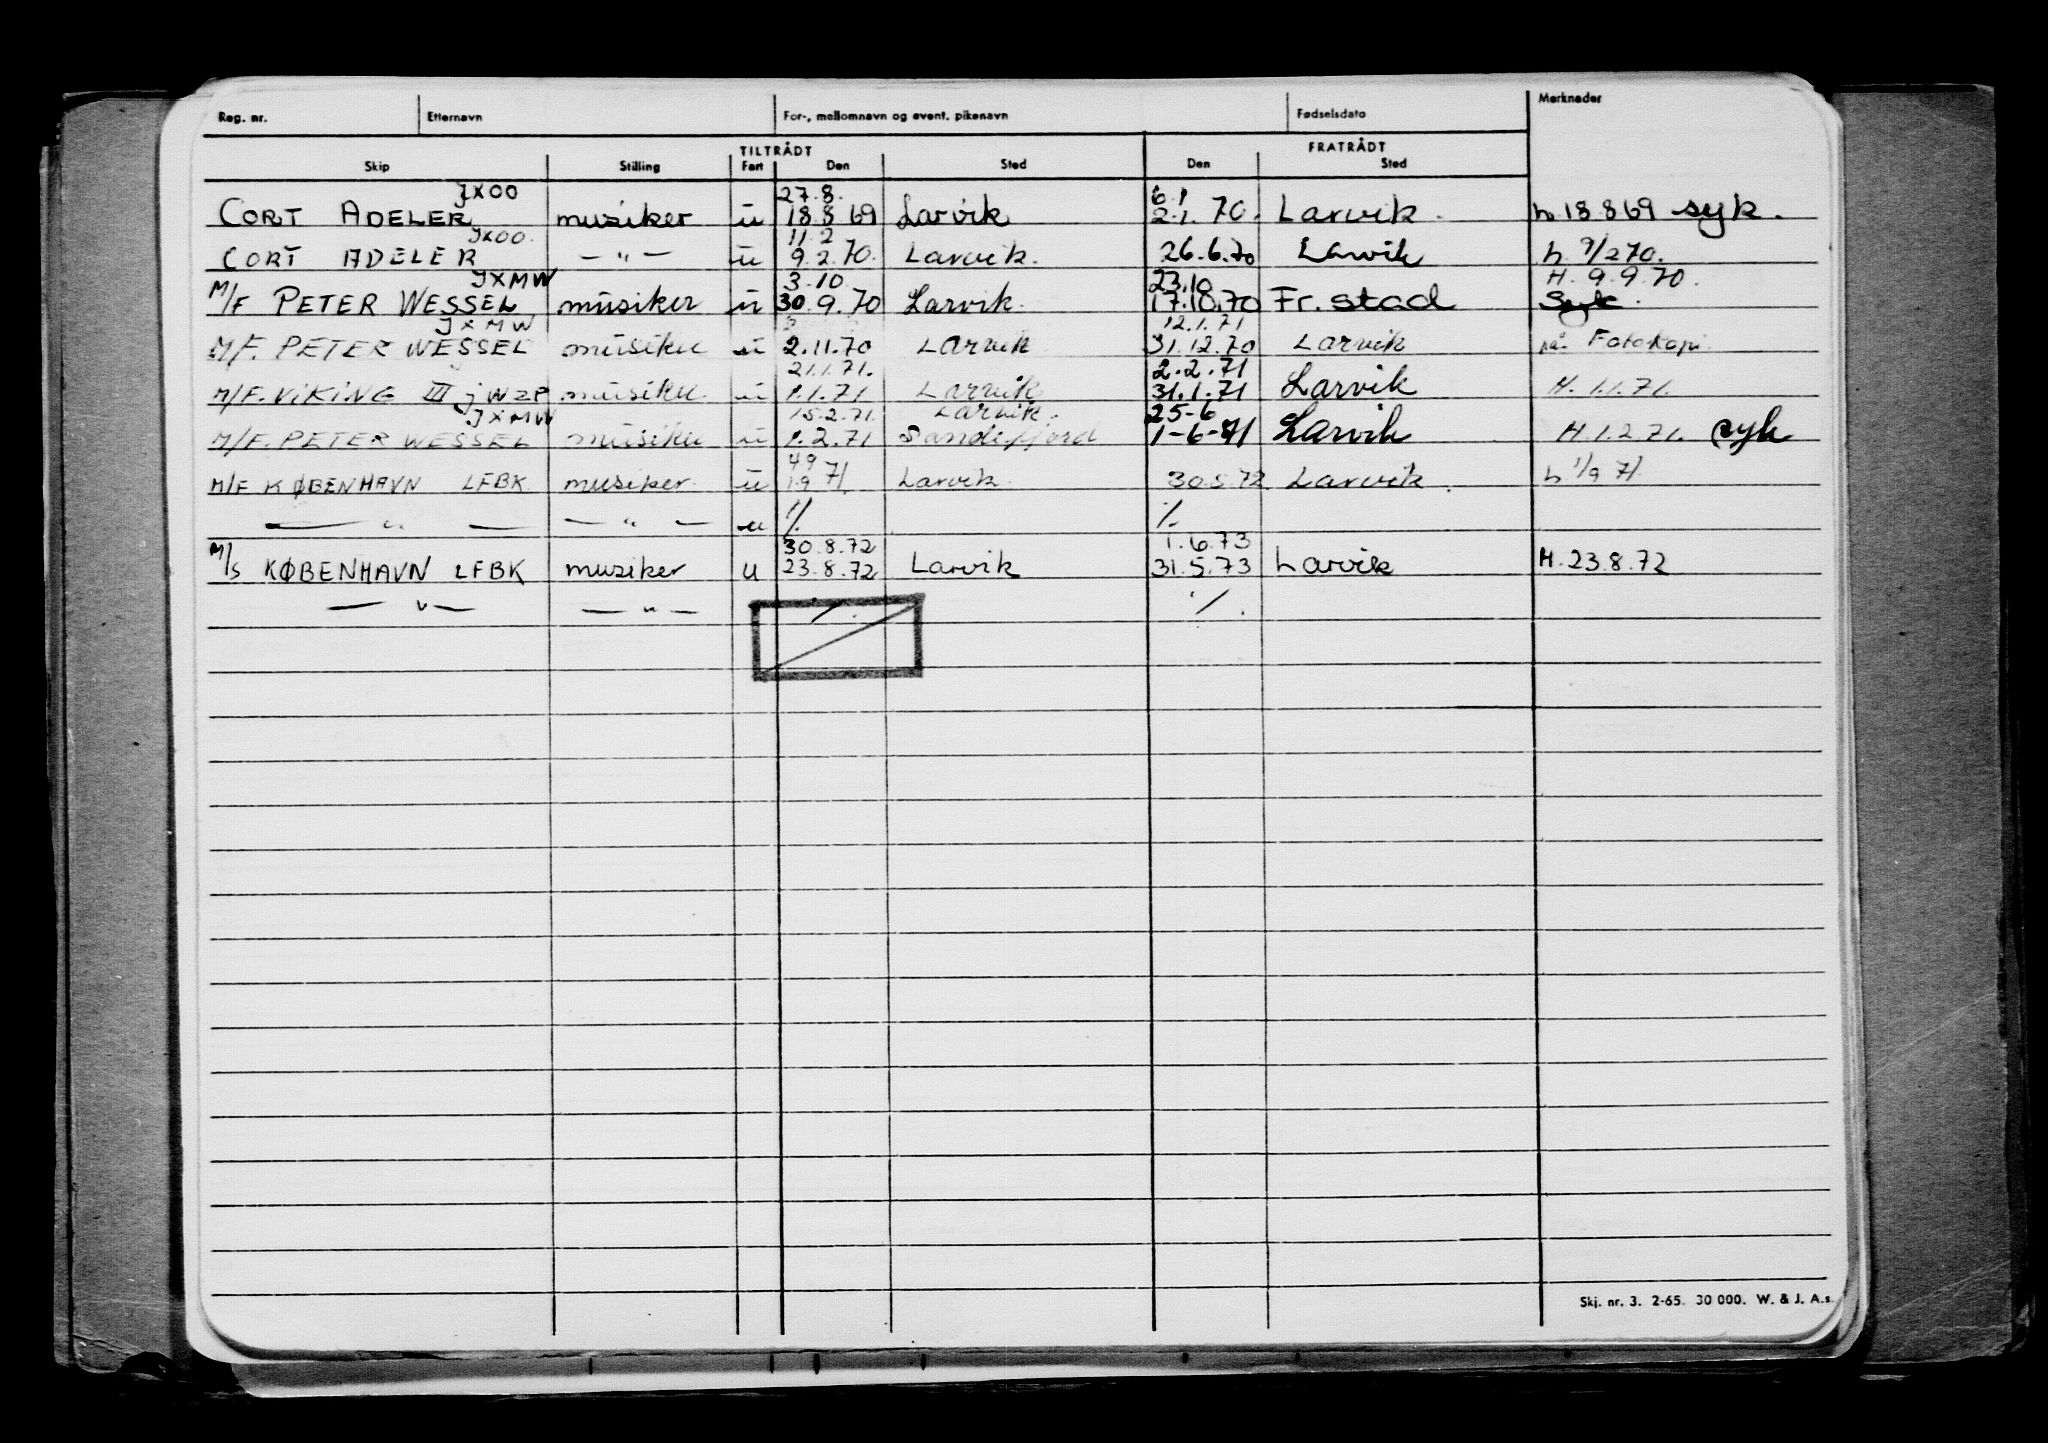 Reg. nr. Etternavn For-, mellomnavn og event. pikenavn Fødselsdato Merknader
TILTRÅDT FRATRÅDT
Skip Stilling Fart Den Sted Den Sted
JXOO 27.8. 6.1
CORT ADELER musiker u 18.8 69 Larvik 2.1. 70. Larvik. h. 18.8 69 syk.
JXOO. 11.2
CORT ADELER — " — u 9.2.70. Larvik. 26.6.70 Larvik h. 9/2 70.
JXMW 3.10 23.10 H. 9.9.70.
M/F PETER WESSEL musiker u 30.9.70 Larvik. 17.10.70 Fr.stad Syk.
JXMW 12.1.71
M/F. PETER WESSEL musiker u 2.11.70 Larvik 31.12.70 Larvik på Fotokopi
21.1.71. 2.2.71
M/F. VIKING III JWZP musiker u 1.1.71 Larvik 31.1.71 Larvik H. 1.1.71.
JXMW 15.2.71. Larvik. 25-6
M/F. PETER WESSEL musiker u 1.2.71 Sandefjord 1-6-71 Larvik H.1.2.71. syk
4.9
M/F KØBENHAVN LFBK musiker u 1.9 71. Larvik 30.5.72 Larvik. h 1/9 71.
— " — — " — u % %
30.8.72 1.6.73
M/S KØBENHAVN LFBK musiker u 23.8.72 Larvik 31.5.73 Larvik H. 23.8.72
— " — — " — % %.
Skj. nr. 3. 2-65. 30 000. W. & J. A.s.